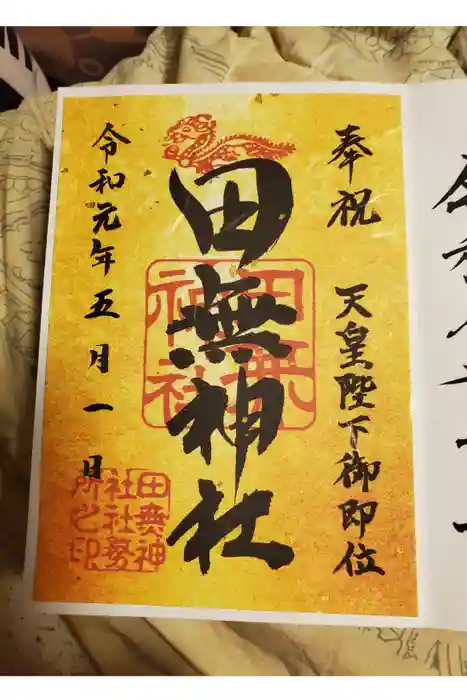 奉祝 天皇陛下御即位
田無神社
田無神社
令和元年五月一日
田無神
社社務
所之印